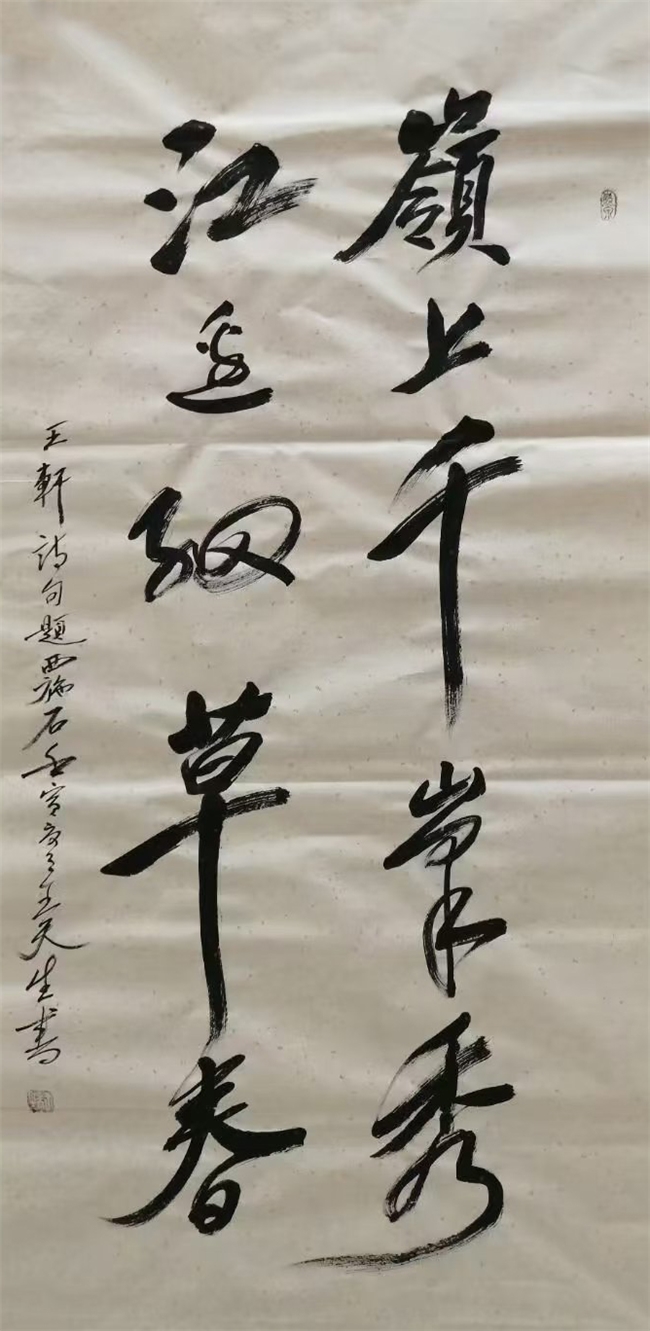 嶺上千峯秀
江邊細草春
王軒詩句題西施石壬寅王天生書